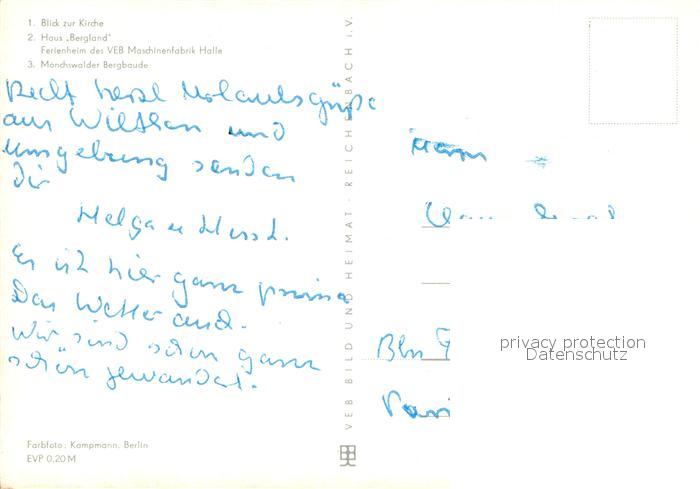 1. Blick zur Kirche
2. Haus „Bergland"
Ferienheim des VEB Maschinenfabrik Halle
3. Mönchswalder Bergbaude
Recht herzl Urlaubsgrüße
aus Wilthen und
Umgebung senden
Dir
Helga u Horst.
Es ist hier ganz prima
Das Wetter auch.
Wir sind schon ganz
schön gewandert.
Farbfoto: Kampmann, Berlin
EVP 0,20 M
VEB BILD UND HEIMAT · REICHENBACH I. V.
Herrn
Bln
privacy protection
Datenschutz